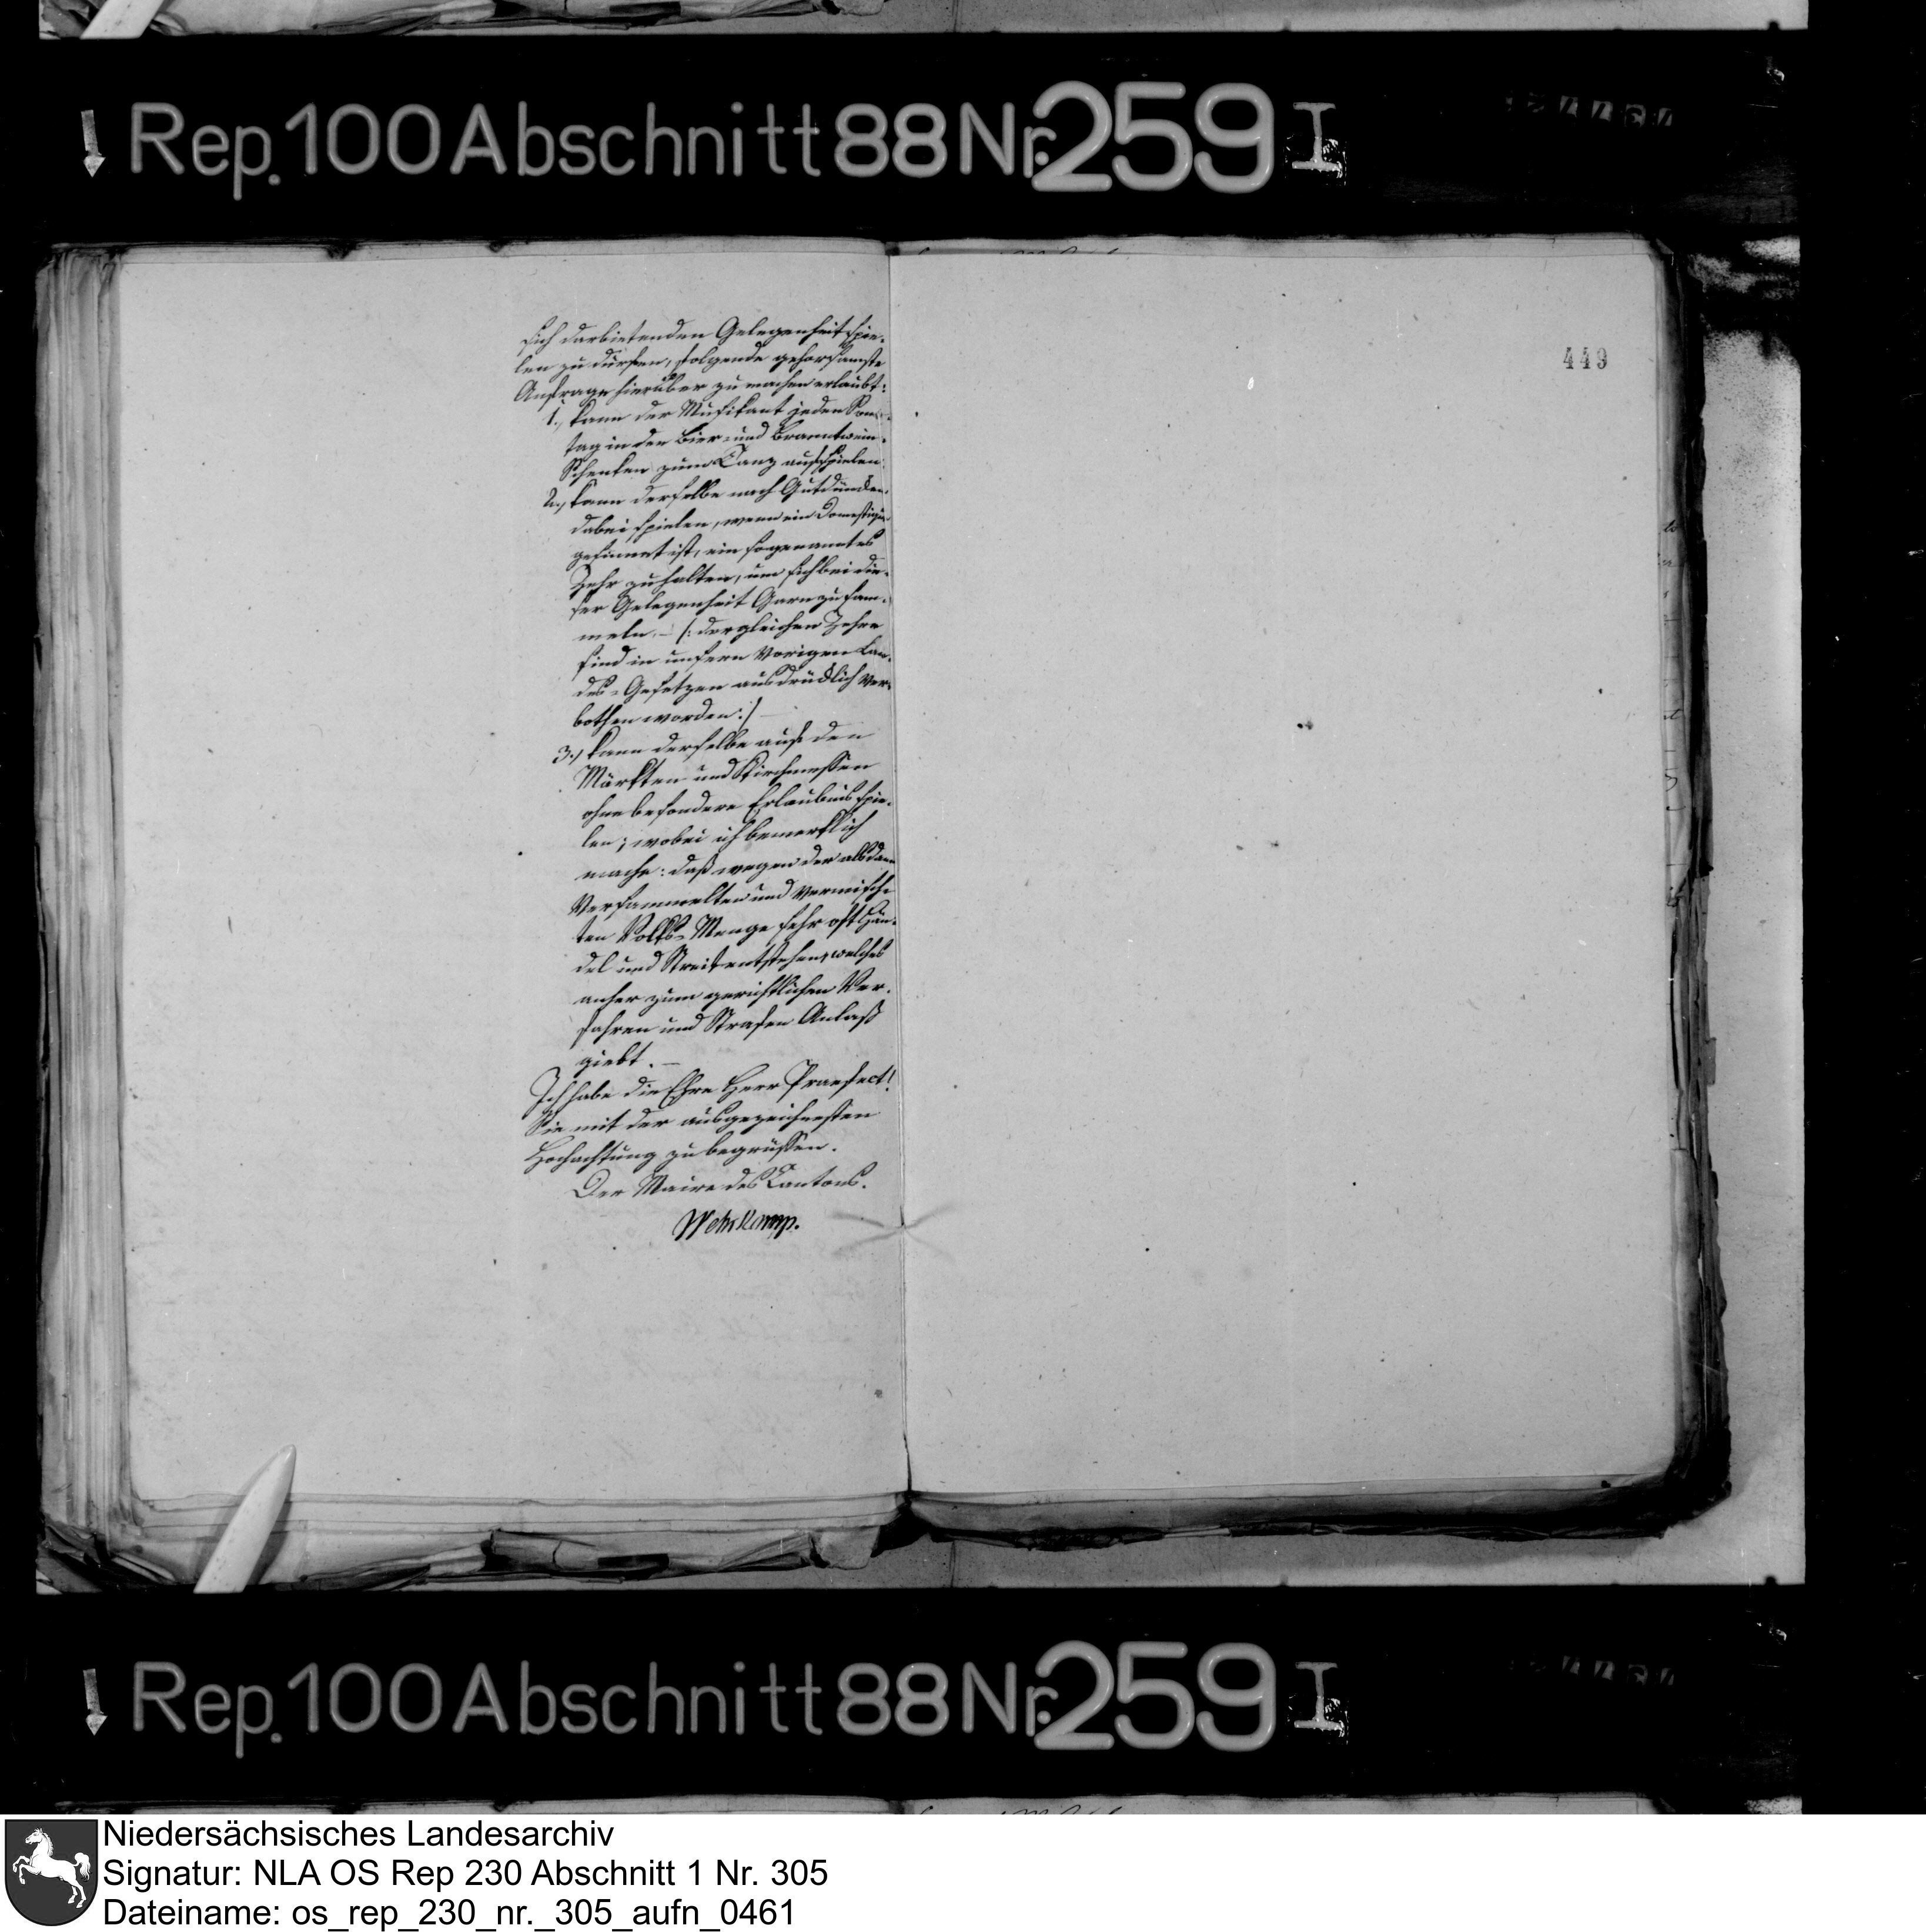 Rep. 100 Abschnitt 88 Nr. 259 I
sich darbietenden Gelegenheit spie-
len zu dürfen, folgende gehorsamste
Anfrage hierüber zu machen erlaubt:
1., kann der Musikant jeden Sonn-
tag in den Bier- und Branntwein-
Schenken zum Tanz aufspielen
2., kann derselbe nach Gutdünken
dabei spielen, wenn ein Domestique
gesinnet ist, ein sogenanntes
Zehr zu halten, um sich bei die-
ser Gelegenheit Garn zu sam-
meln. – /: dergleichen Zehre
sind in unsern vorigen Lan-
des-Gesetzen ausdrücklich ver-
bothen worden :/
3., kann derselbe auf den
Märkten und Kirchmessen
ohne besondere Erlaubnis spie-
len; wobei ich bemerklich
mache: daß wegen der alsdann
versammelten und vermisch-
ten Volks-Menge sehr oft Hän-
del und Streit entstehen, welches
anher zum gerichtlichen Ver-
fahren und Strafen Anlaß
giebt. –
Ich habe die Ehre Herr Praefect!
Sie mit der ausgezeichnesten
Hochachtung zu begrüssen.
Der Maire des Cantons.
Wehrkamp.
449
Rep. 100 Abschnitt 88 Nr. 259 I
Niedersächsisches Landesarchiv
Signatur: NLA OS Rep 230 Abschnitt 1 Nr. 305
Dateiname: os_rep_230_nr._305_aufn_0461